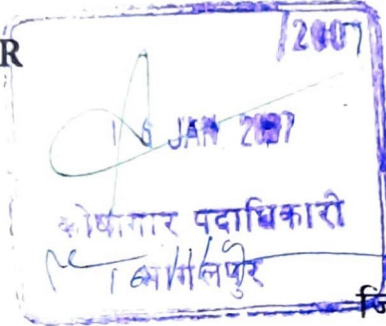 R
/2007
16 JAN 2007
कोषागार पदाधिकारी
भागलपुर